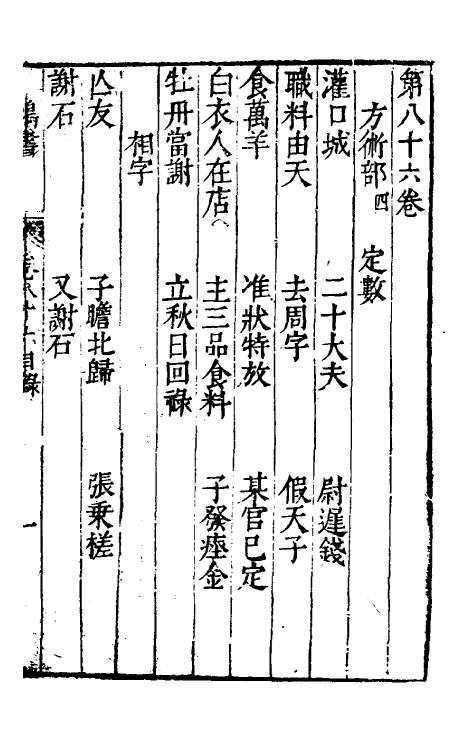 第八十六卷
方術部四 定數
灌口城 二十大夫 尉遲錢
職料由天 去周字 假天子
食萬羊 准狀特放 某官已定
白衣人在店 主三品食料 子發瘞金
牡丹當謝 立秋日回祿
相字
亾友 子瞻北歸 張乗槎
謝石 又謝石
目錄 一